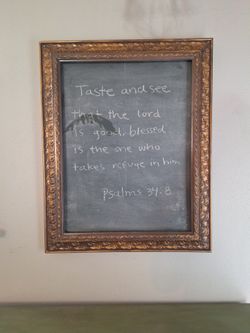 Taste and see
that the lord
is good, blessed
is the one who
takes refuge in him
Psalms 34:8